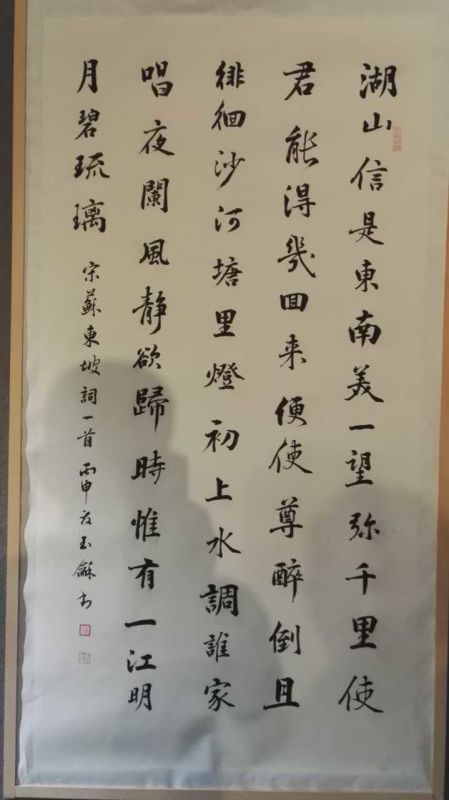 湖山信是東南美一望弥千里使
君能得幾回来便使尊醉倒且
徘徊沙河塘里燈初上水調誰家
唱夜闌風靜欲歸時惟有一江明
月碧琉璃 宋蘇東坡詞一首丙申玉龢书